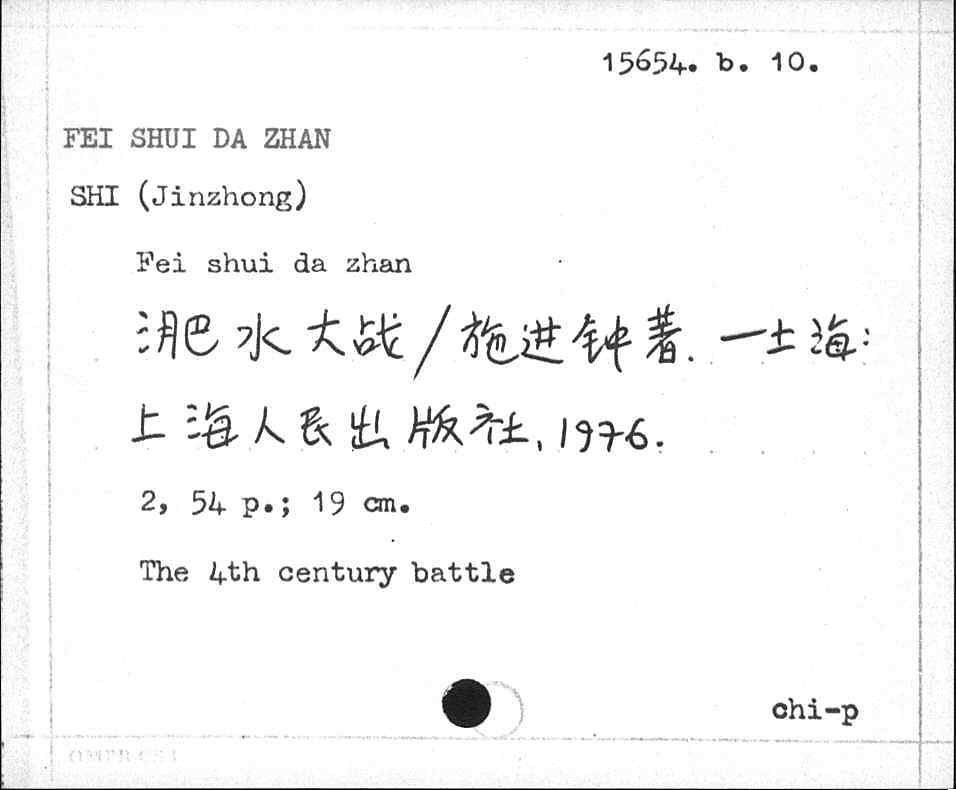 15654. b. 10.
FEI SHUI DA ZHAN
SHI (Jinzhong)
Fei shui da zhan
淝水大战/施进钟著. — 上海:
上海人民出版社, 1976.
2, 54 p.; 19 cm.
The 4th century battle
chi-p